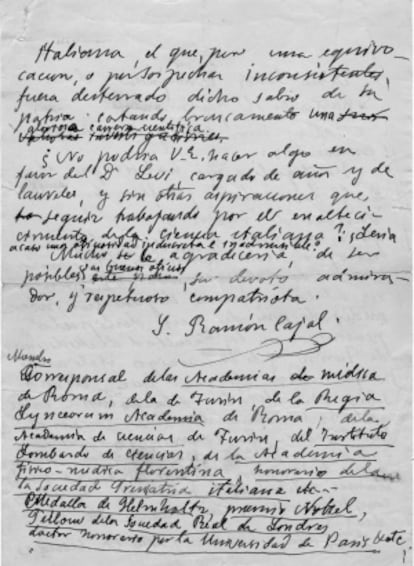 Italiana, el que, por una equivo-
cacion, o por sospechas inconsistentes,
fuera desterrado dicho sabio de su
patria cortando bruscamente una
gloriosa carrera cientifica.
¿No podria V.E. hacer algo en
favor del Dr Levi cargado de años y de
laureles, y sin otras aspiraciones que
seguir trabajando por el enalteci-
miento de la ciencia italiana?
Mucho se la agradeceria, de ser
posibles sus buenos oficios su devoto admira-
dor, y respetuoso compatriota.
S. Ramón Cajal.
Miembro
Corresponsal de las Academias de médica
de Roma, de la de Turin, de la Regia
Lynceorum Academia de Roma, de la
Academia de Ciencias de Turin, del Instituto
Lombardo de Ciencias, de la Academia
fisio-medica florentina honorario de la
la Sociedad Freniatria italiana
Medalla de Helmholtz, premio Nobel,
Fellow de la Sociedad Real de Londres
doctor honorario por la Universidad de Paris etc.